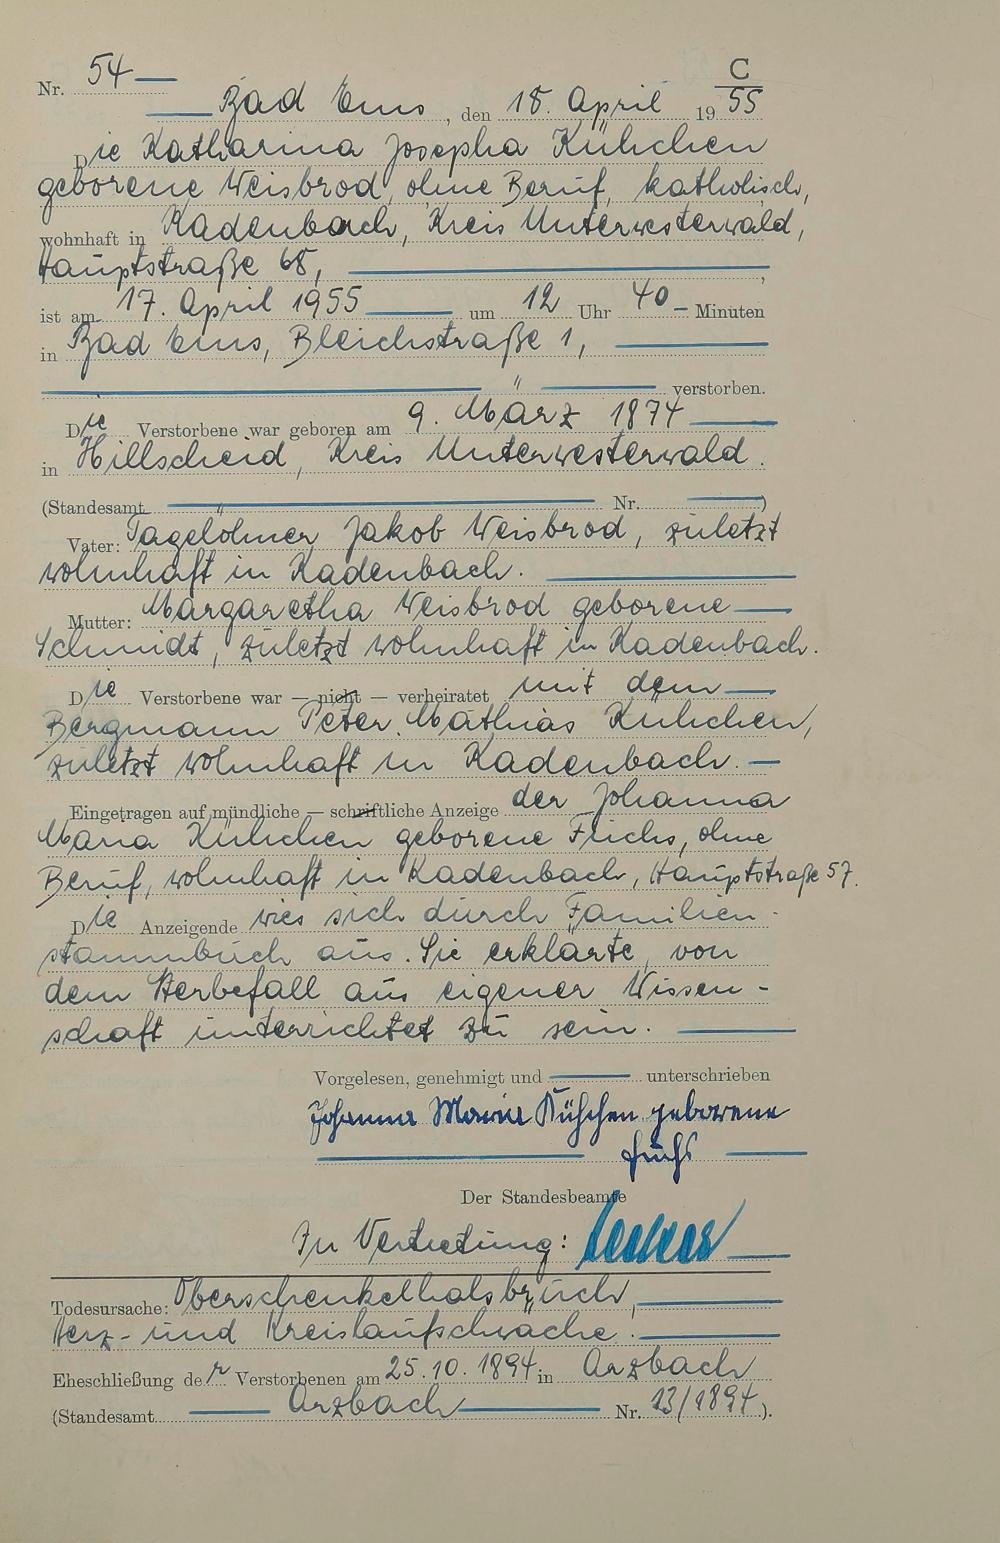 C
Nr. 54
Bad Ems, den 18. April 1955
Die Katharina Josepha Kühchen
geborene Weisbrod, ohne Beruf, katholisch,
wohnhaft in Kadenbach, Kreis Unterwesterwald,
Hauptstraße 68,
ist am 17. April 1955 um 12 Uhr 40 Minuten
in Bad Ems, Bleichstraße 1,
" verstorben.
Die Verstorbene war geboren am 9. März 1874
in Hillscheid, Kreis Unterwesterwald.
(Standesamt Nr. )
Vater: Tagelöhner Jakob Weisbrod, zuletzt
wohnhaft in Kadenbach.
Mutter: Margaretha Weisbrod geborene
Schmidt, zuletzt wohnhaft in Kadenbach.
Die Verstorbene war — nicht — verheiratet mit dem
Bergmann Peter Mathias Kühchen,
zuletzt wohnhaft in Kadenbach.
Eingetragen auf mündliche — schriftliche Anzeige der Johanna
Maria Kühchen geborene Fuchs, ohne
Beruf, wohnhaft in Kadenbach, Hauptstraße 57.
Die Anzeigende wies sich durch Familien-
stammbuch aus. Sie erklärte, von
dem Sterbefall aus eigener Wissen-
schaft unterrichtet zu sein.
Vorgelesen, genehmigt und unterschrieben
Johanna Maria Kühchen geborene
Fuchs
Der Standesbeamte
In Vertretung:
Todesursache: Oberschenkelhalsbruch,
Herz- und Kreislaufschwäche.
Eheschließung der Verstorbenen am 25.10.1894 in Arzbach
(Standesamt Arzbach Nr. 13/1894).